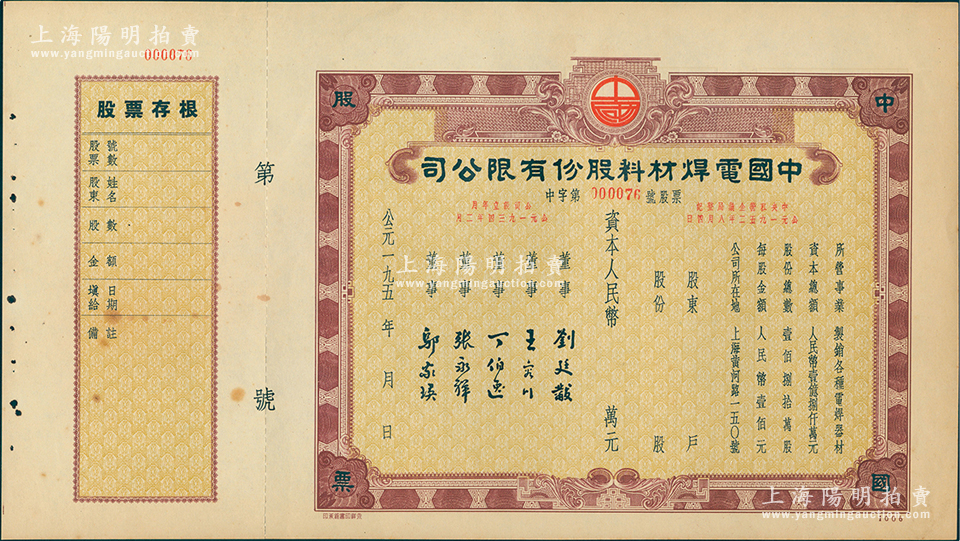 上海陽明拍賣
www.yangmingauction.com
000076
股票存根
股票號數
股東姓名
股數
金額
填給日期
備註
第
號
中
國
股
票
中國電焊材料股份有限公司
中字第000076號股票
公元一九五二年八月四日
公司創立年月
公元一九三四年二月
所營事業 製銷各種電焊器材
資本總額 人民幣壹億捌仟萬元
股份總數 壹佰捌拾萬股
每股金額 人民幣壹佰元
公司所在地 上海黄河路一五〇號
股東 戶
股份 股
資本人民幣 萬元
董事 劉廷黻
董事 王
董事 丁伯逸
董事 張永祥
董事 鄔家瑛
公元一九五 年 月 日
上海陽明拍賣
www.yangmingauction.com
上海陽明拍賣
www.yangmingauction.com